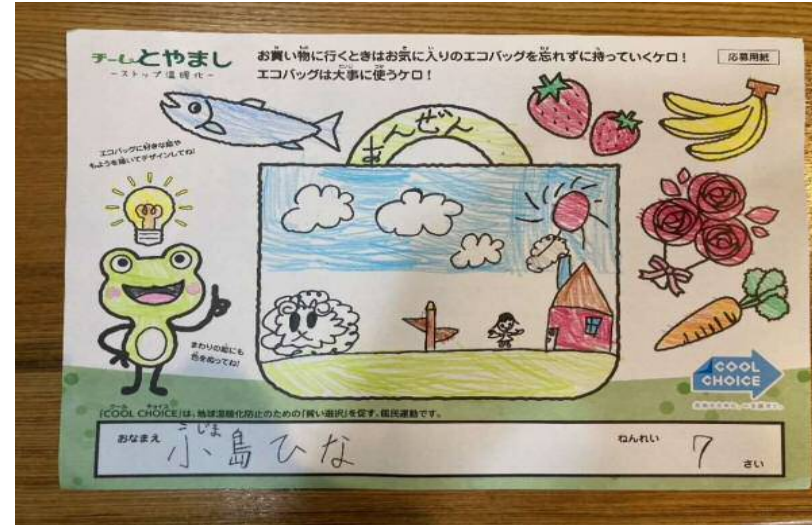 チームとやまし
-ストップ温暖化-
お買い物に行くときはお気に入りのエコバッグを忘れずに持っていくケロ!
エコバッグは大事に使うケロ!
応募用紙
エコバッグに好きな絵や
もようを描いてデザインしてね!
おんせん
まわりの絵にも
色をぬってね!
COOL
CHOICE
「COOL CHOICE」は、地球温暖化防止のための「賢い選択」を促す、国民運動です。
おなまえ 小島ひな ねんれい 7 さい